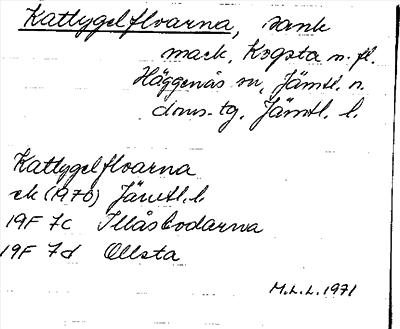 Kattygelfloarna, sank
mack, Kogsta n. fl.
Häggenås sn, Jämtl. n.
doms.-tg, Jämtl. l.
Kattygelfloarna
ek (1970) Jämtl. l.
19F 7c Illåsbodarna
19F 7d Ollsta
M.L.L. 1971